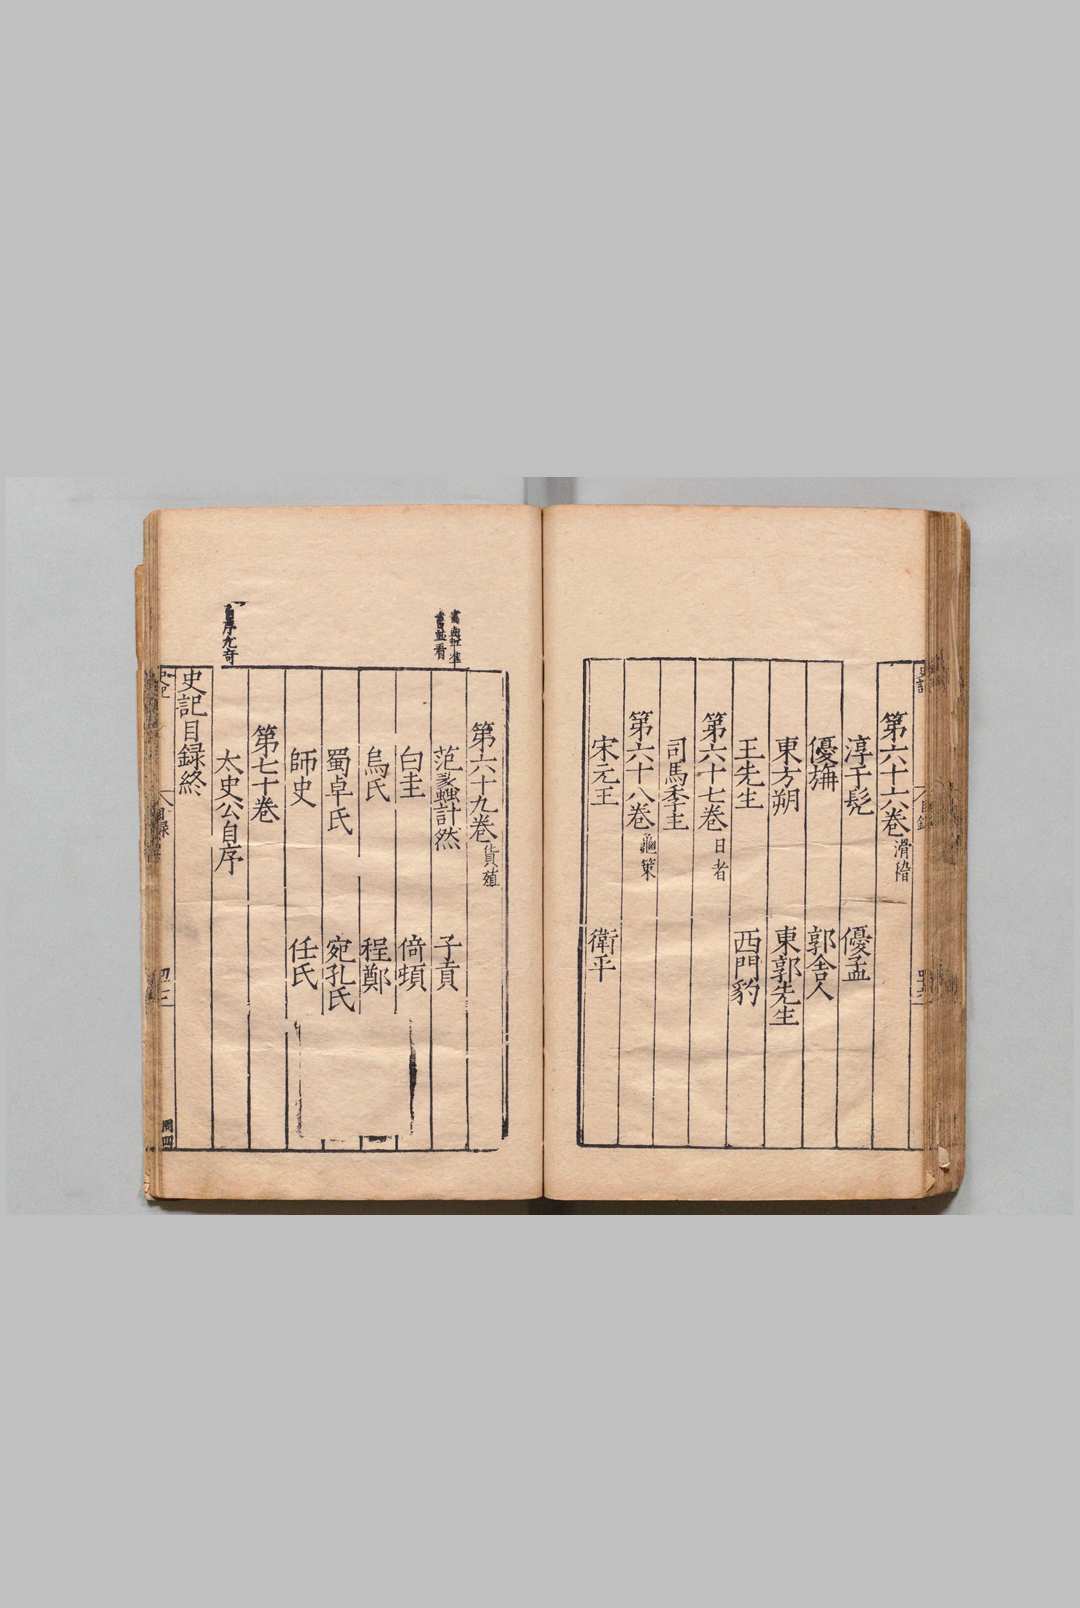 第六十六卷 滑稽
淳于髡 優孟
優旃 郭舍人
東方朔 東郭先生
王先生 西門豹
第六十七卷 日者
司馬季主
第六十八卷 龜策
宋元王 衛平
第六十九卷 貨殖
范蠡計然 子貢
白圭 倚頓
烏氏 程鄭
蜀卓氏 宛孔氏
師史 任氏
第七十卷
自序尤奇
太史公自序
史記目録終
史記
目録
四三